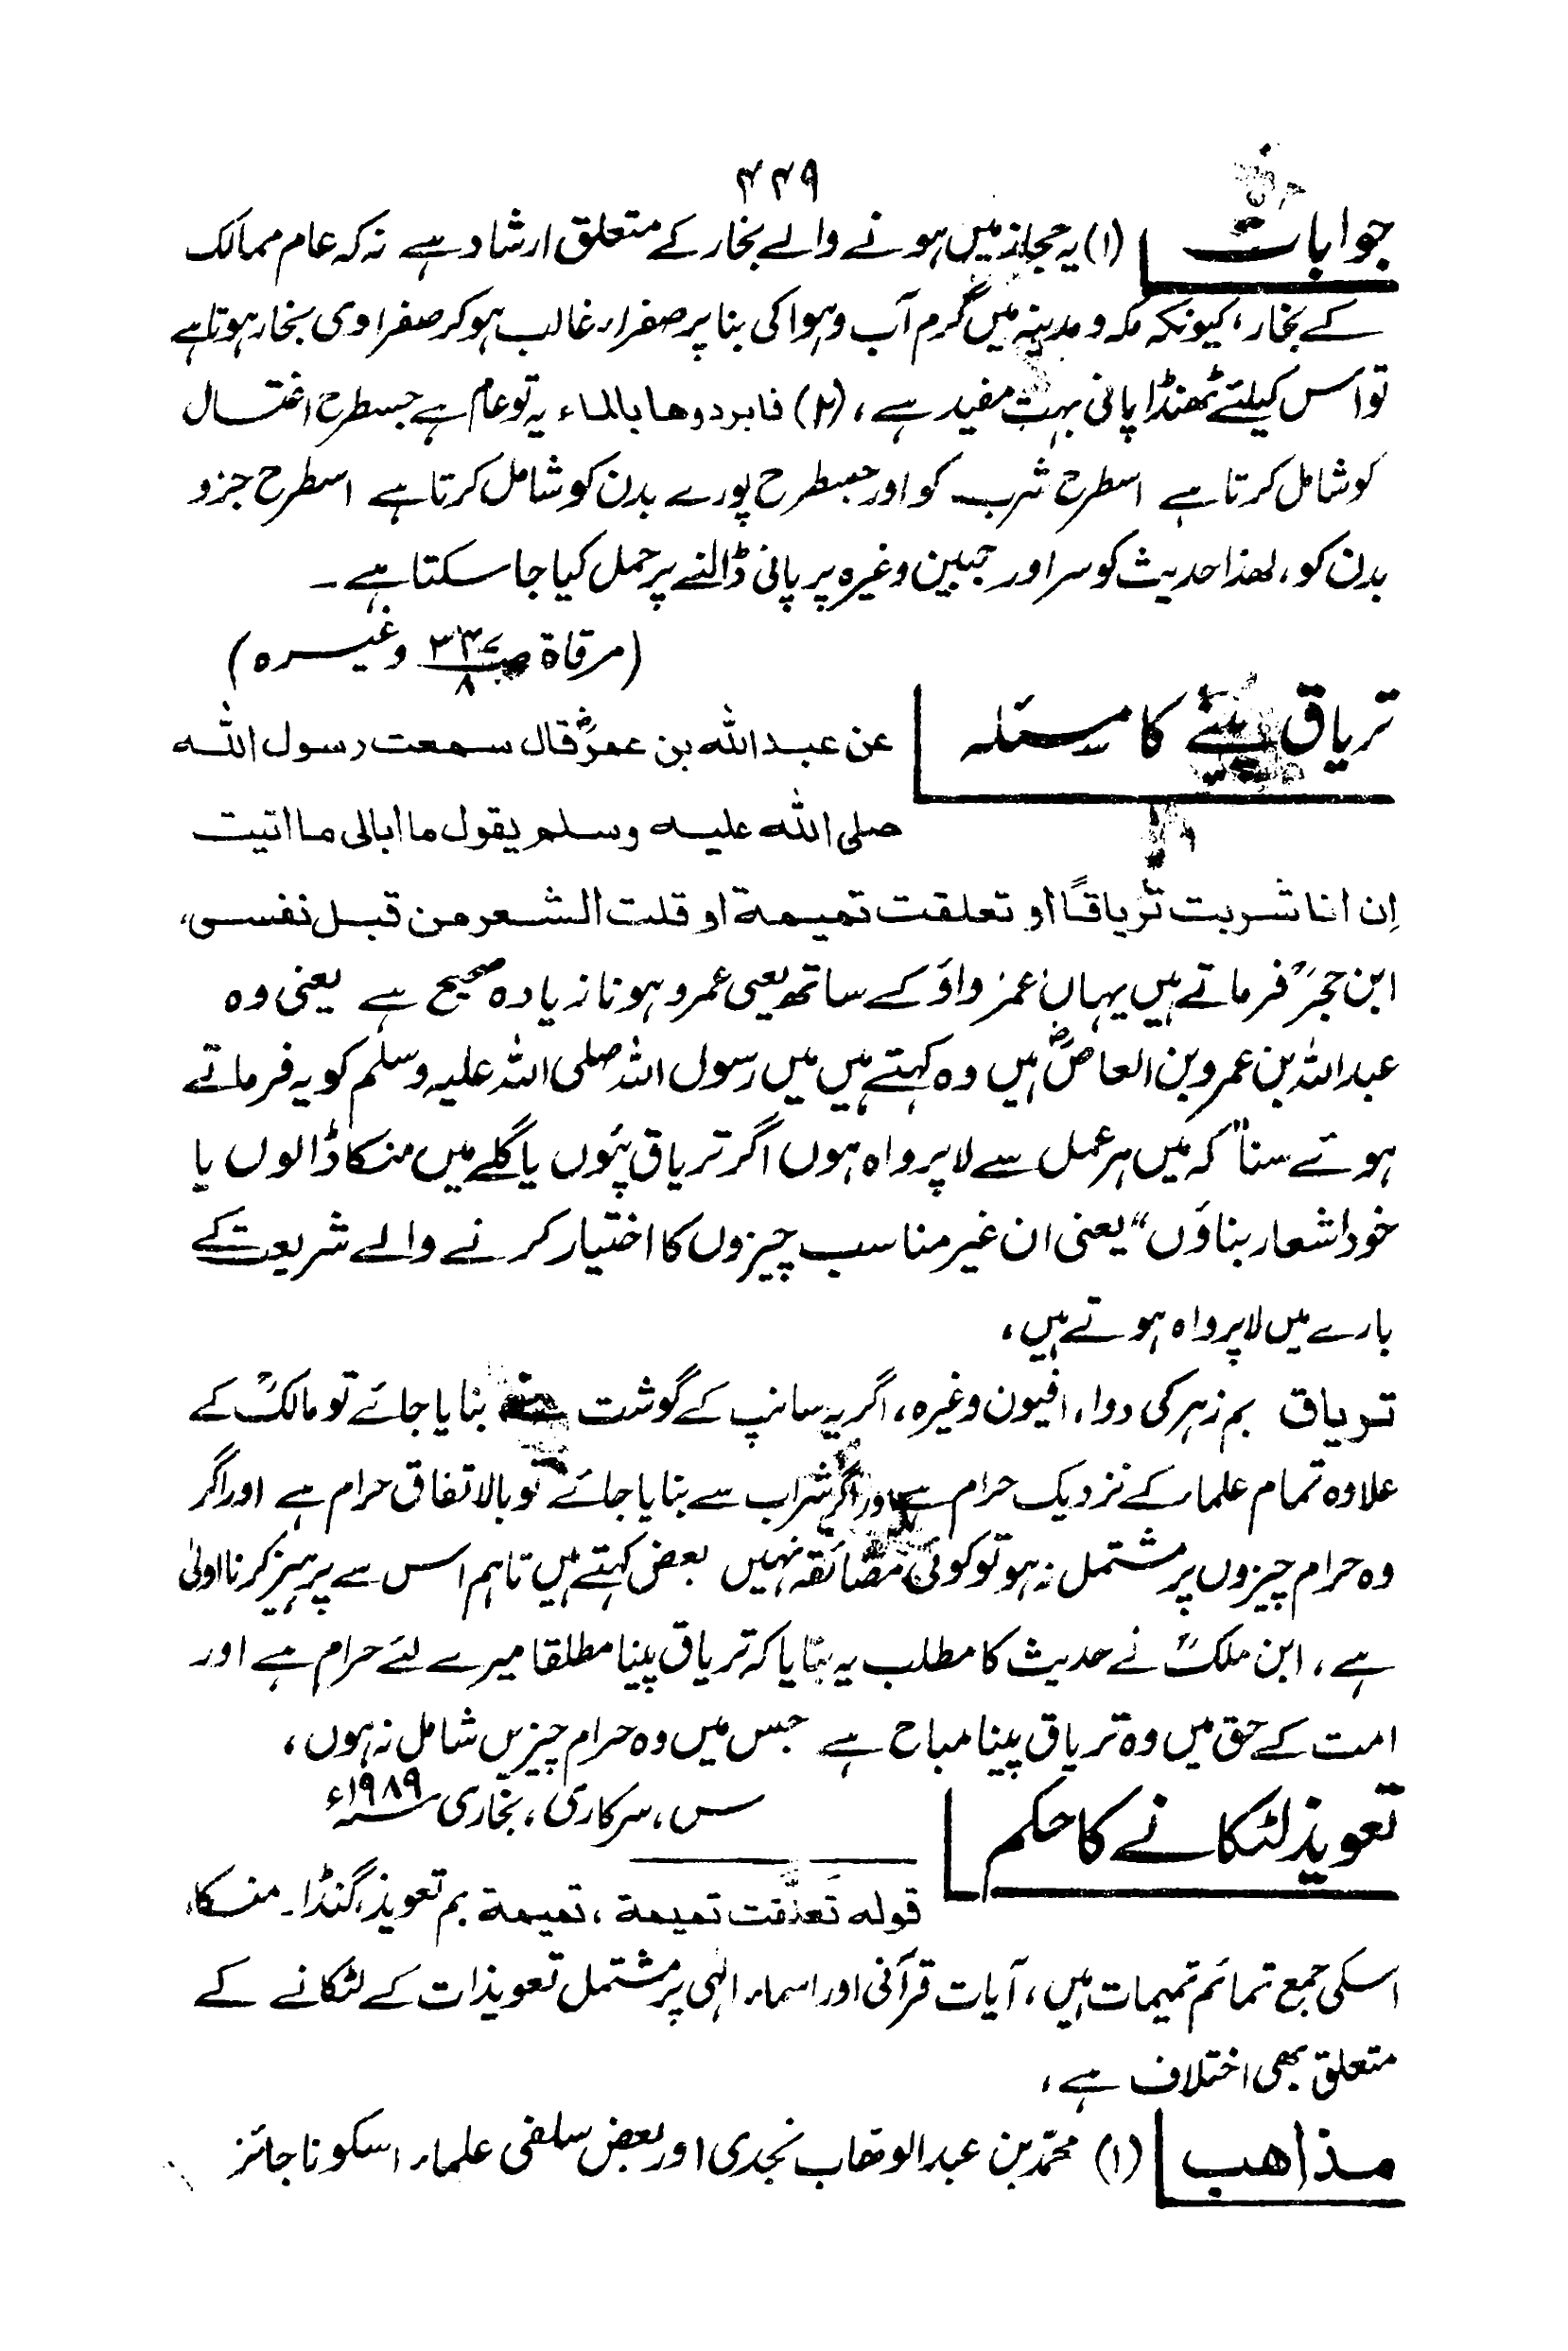 ۴۴۹
جوابات (۱) یہ حجاز میں ہونے والے بخار کے متعلق ارشاد ہے نہ کہ عام ممالک
کے بخار، کیونکہ مکہ و مدینہ میں گرم آب وہوا کی بنا پر صفراء غالب ہوکر صفراوی بخار ہوتا ہے
تو اس کیلئے ٹھنڈا پانی بہت مفید ہے، (۲) فابردوھا بالماء یہ تو عام ہے جسطرح اغتسال
کو شامل کرتا ہے اسطرح شرب کو اور جسطرح پورے بدن کو شامل کرتا ہے اسطرح جزو
بدن کو، لھذا حدیث کو سر اور جبین وغیرہ پر پانی ڈالنے پر حمل کیا جاسکتا ہے ۔
(مرقاة ص۳۴۷/۸ وغیرہ)
تریاق پینے کا مسئلہ عن عبد اللہ بن عمرؓ قال سمعت رسول اللہ
صلی اللہ علیہ وسلم یقول ما ابالی ما اتیت
إن انا شربت تریاقًا او تعلقت تمیمة او قلت الشعر من قبل نفسی،
ابن حجرؒ فرماتے ہیں یہاں عمر واؤ کے ساتھ یعنی عمرو ہونا زیادہ صحیح ہے یعنی وہ
عبد اللہ بن عمرو بن العاصؓ ہیں وہ کہتے ہیں میں رسول اللہ صلی اللہ علیہ وسلم کو یہ فرماتے
ہوئے سنا "کہ میں ہر عمل سے لاپرواہ ہوں اگر تریاق پئوں یا گلے میں منکا ڈالوں یا
خود اشعار بناؤں" یعنی ان غیر مناسب چیزوں کا اختیار کرنے والے شریعت کے
بارے میں لاپرواہ ہوتے ہیں،
تریاق بم زہر کی دوا، افیون وغیرہ، اگر یہ سانپ کے گوشت سے بنایا جائے تو مالکؒ کے
علاوہ تمام علماء کے نزدیک حرام ہے اور اگر شراب سے بنایا جائے تو بالاتفاق حرام ہے اور اگر
وہ حرام چیزوں پر مشتمل نہ ہو تو کوئی مضائقہ نہیں بعض کہتے ہیں تاہم اس سے پرہیز کرنا اولیٰ
ہے، ابن ملکؒ نے حدیث کا مطلب یہ بتایا کہ تریاق پینا مطلقا میرے لئے حرام ہے اور
امت کے حق میں وہ تریاق پینا مباح ہے جس میں وہ حرام چیزیں شامل نہ ہوں،
س، سرکاری، بخاری ۱۹۸۹ء
تعویذ لٹکانے کا حکم
قولہ تَعلَّقت تمیمة، تمیمة بم تعویذ، گنڈا۔ منکا،
اسکی جمع تمائم تمیمات ہیں، آیات قرآنی اور اسماء الٰہی پر مشتمل تعویذات کے لٹکانے کے
متعلق بھی اختلاف ہے،
مذاھب (۱) محمد بن عبد الوھاب نجدی اور بعض سلفی علماء اسکو ناجائز